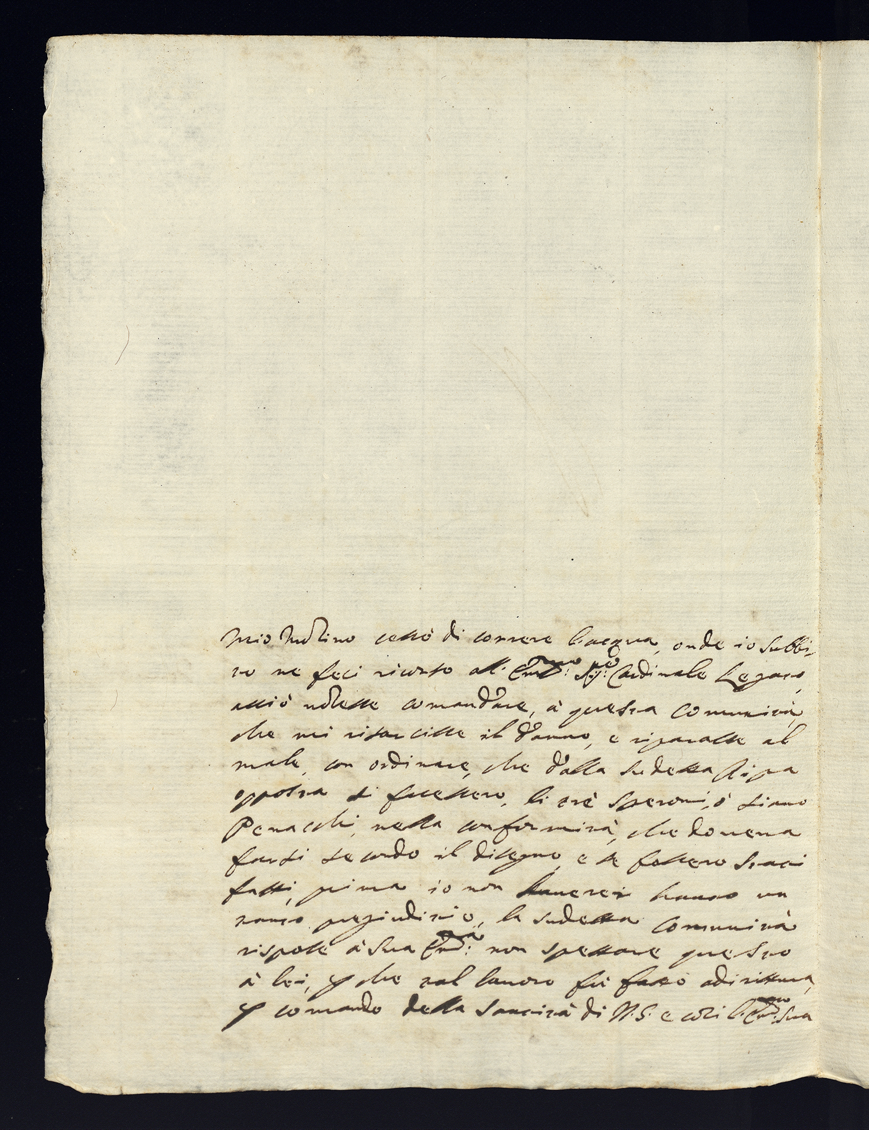 mio Molino cessò di correre l'acqua, onde io subbi-
to ne feci ricorso all'Em.mo Sig.r Cardinale Legato,
acciò volesse comandare, à questa Comunità,
che mi risarcisse il danno, e riparasse al
male, con ordinare, che dalla sudetta Ripa
opposta si facessero, li trè Speroni, ò siano
Penacchi, nella conformità, che doveva
farsi secondo il disegno, e se fossero stati
fatti, prima io non haverei hauto un
tanto pregiudizio, la sudetta Comunità
rispose à Sua Em.za non spettare questo
à lei, p che tal lavoro fù fatto adirittura,
p comando della Santità di N.S. e così l'Em.mo Sua